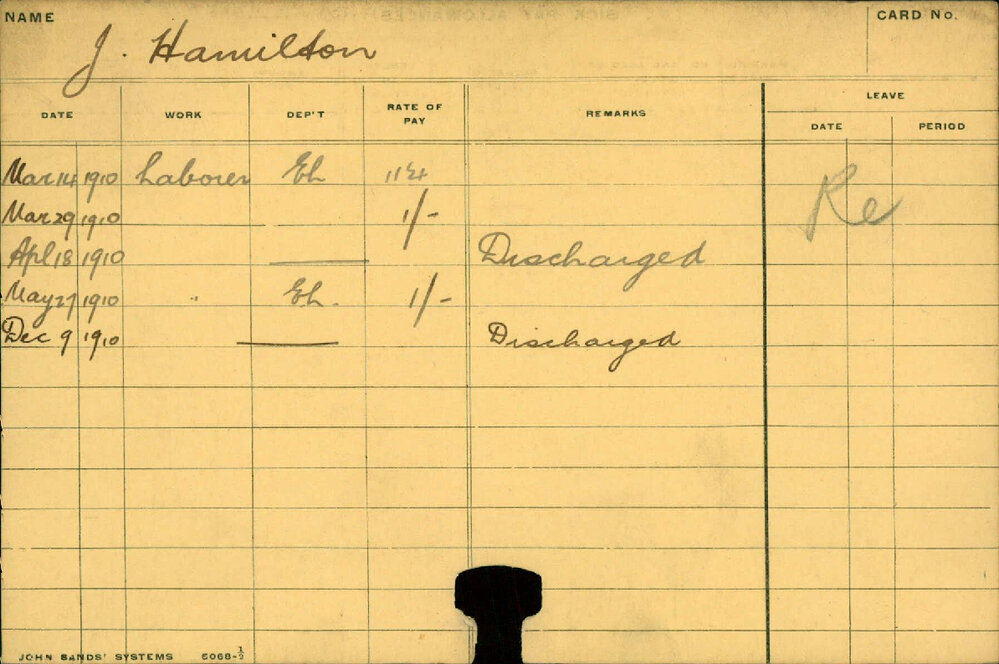 NAME
J. Hamilton
CARD No.
DATE WORK DEP'T RATE OF PAY REMARKS LEAVE
DATE PERIOD
Mar 14 1910 Laborer Eh
Re
Mar 29 1910 1/-
Apl 18 1910 Discharged
May 27 1910 " Eh. 1/-
Dec 9 1910 Discharged
JOHN SANDS' SYSTEMS 6068-½